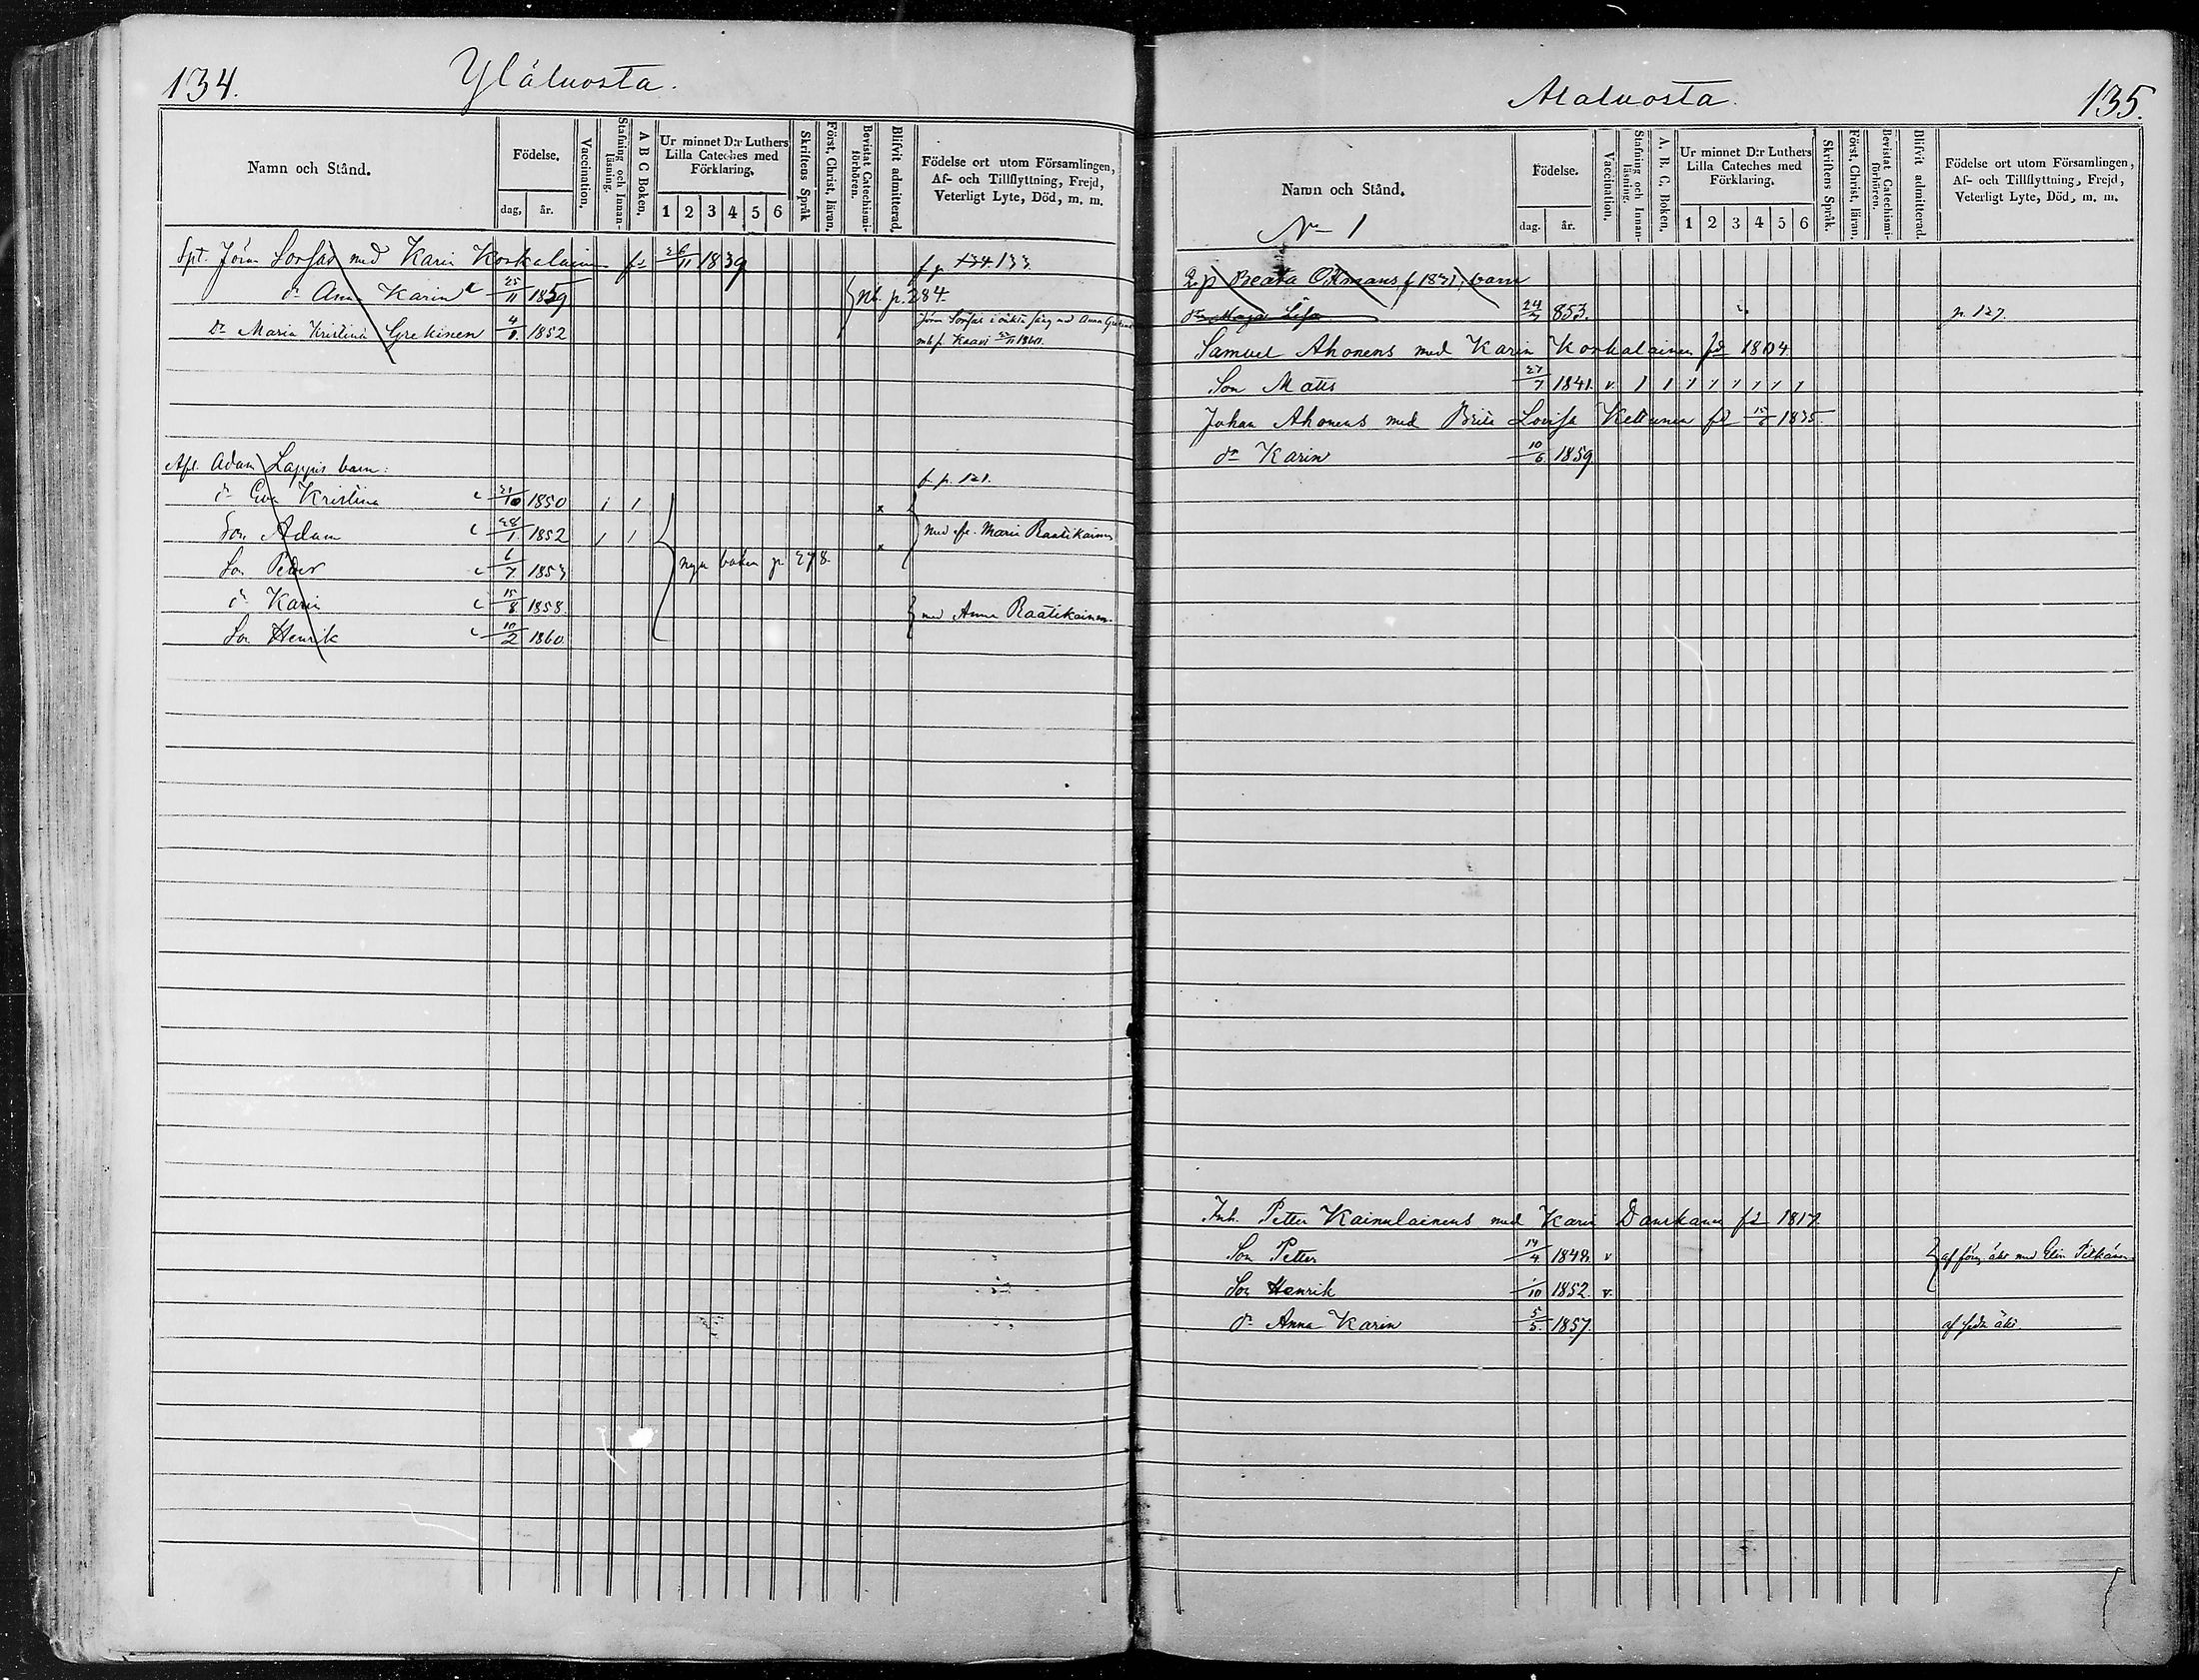 134.
Yläluosta.
Namn och Stånd.
Födelse.
dag,
år.
Vaccination.
Stafning och Innan-läsning.
A B C Boken,
Ur minnet D:r Luthers
Lilla Cateches med
Förklaring,
1 2 3 4 5 6
Skriftens Språk
Först, Christ, läran.
Bevistat Catechismi-förhören.
Blifvit admitterad,
Födelse ort utom Församlingen,
Af- och Tillflyttning, Frejd,
Veterligt Lyte, Död, m. m.
med Karin Korkalainen fd 26/11 1839 f. p. 134. 133.
dr Anna Karin 25/11 1859 nb. p. 284.
Dr Maria Kristina Grekinen 4/8 1852
Adam Lappis barn: f. p. 121.
dr Eva Kristina 21/10 1850 1 1 x
Son Adam 28/1 1852 1 1 x Med Maria Raatikainen
Son Peter 6/7 1853 nya boken p. 278.
dr Karin 15/8 1858. med Anna Raatikainen.
Son Henrik 10/2 1860
Alaluosta.
135.
Namn och Stånd.
No 1
Födelse.
dag.
år.
Vaccination.
Stafning och Innan-läsning.
A. B. C. Boken.
Ur minnet D:r Luthers
Lilla Cateches med
Förklaring.
1 2 3 4 5 6
Skriftens Språk.
Först, Christ, läran.
Bevistat Catechismi-förhören.
Blifvit admitterad.
Födelse ort utom Församlingen,
Af- och Tillflyttning, Frejd,
Veterligt Lyte, Död, m. m.
Beata f 1831, barn
dr Maja Lisa 24/3 853. p. 127.
Samuel Ahonens med Karin Korkalainen fd 1804
Son Matts 27/7 1841. v. 1 1 1 1 1 1 1 1
Johan Ahonens med Brita Lovisa Kettunen fd 1835.
dr Karin 10/6 1859
Inh. Petter Kainulainens med Karin Danskanen fd 1817.
Son Petter 14/4 1848. v af förg. äkt. med Elin Pitkänen
Son Henrik 1/10 1852. v.
dr Anna Karin 5/5. 1857. af äkt.